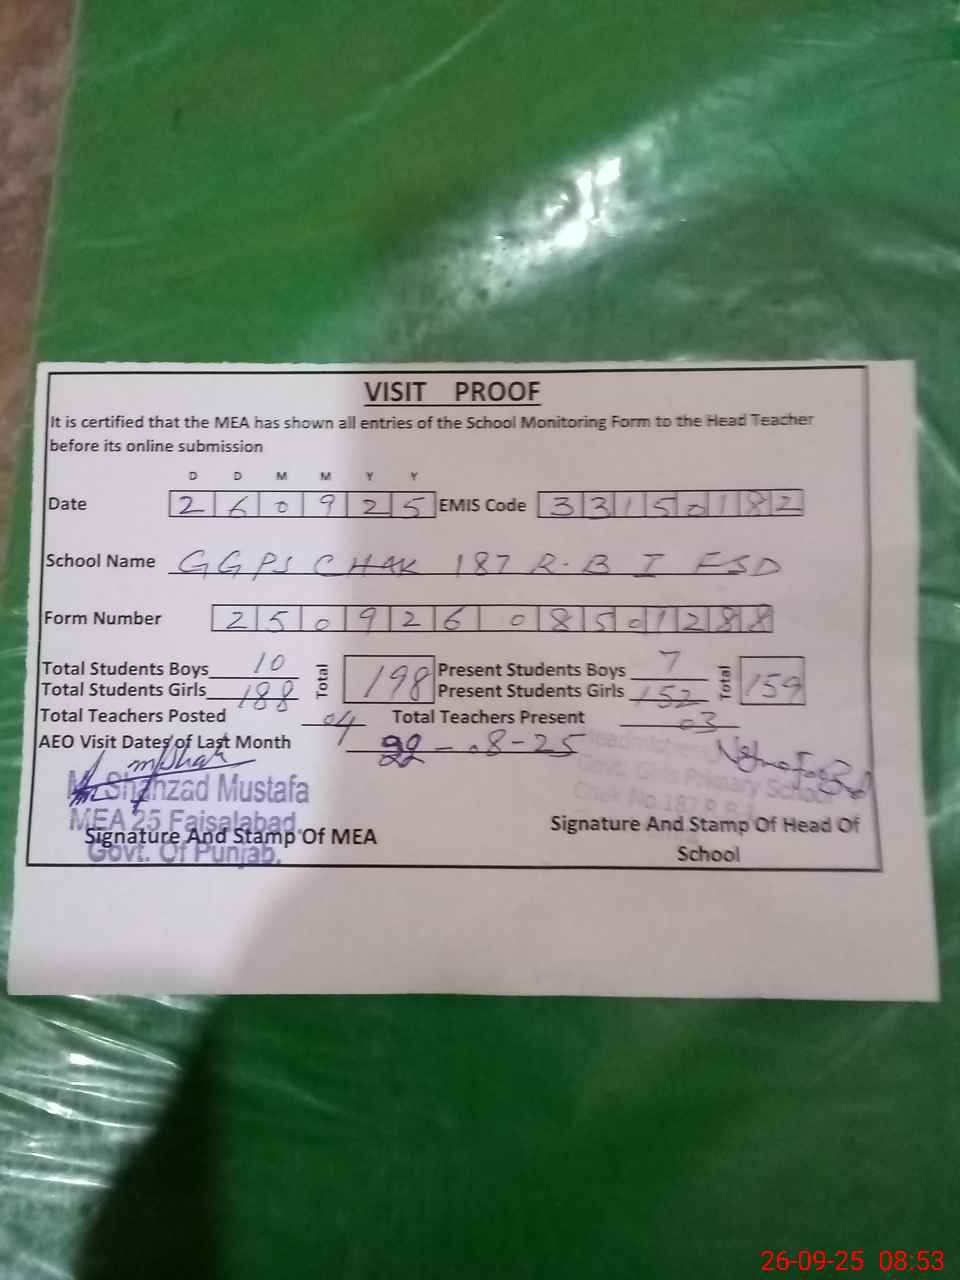 VISIT PROOF
It is certified that the MEA has shown all entries of the School Monitoring Form to the Head Teacher
before its online submission
D D M M Y Y
Date 2 6 0 9 2 5 EMIS Code 3 3 1 5 0 1 8 2
School Name GGPS CHAK 187 R.B I FSD
Form Number 2 5 0 9 2 6 0 8 5 0 1 2 8 8
Total Students Boys 10 Total 198 Present Students Boys 7 Total 159
Total Students Girls 188 Present Students Girls 152
Total Teachers Posted 04 Total Teachers Present 03
AEO Visit Dates of Last Month 22-08-25
M. Shahzad Mustafa
MEA 25 Faisalabad
Govt. Of Punjab.
Govt. Girls Primary School
Chak No.187 R.B
Signature And Stamp Of MEA
Signature And Stamp Of Head Of
School
26-09-25 08:53